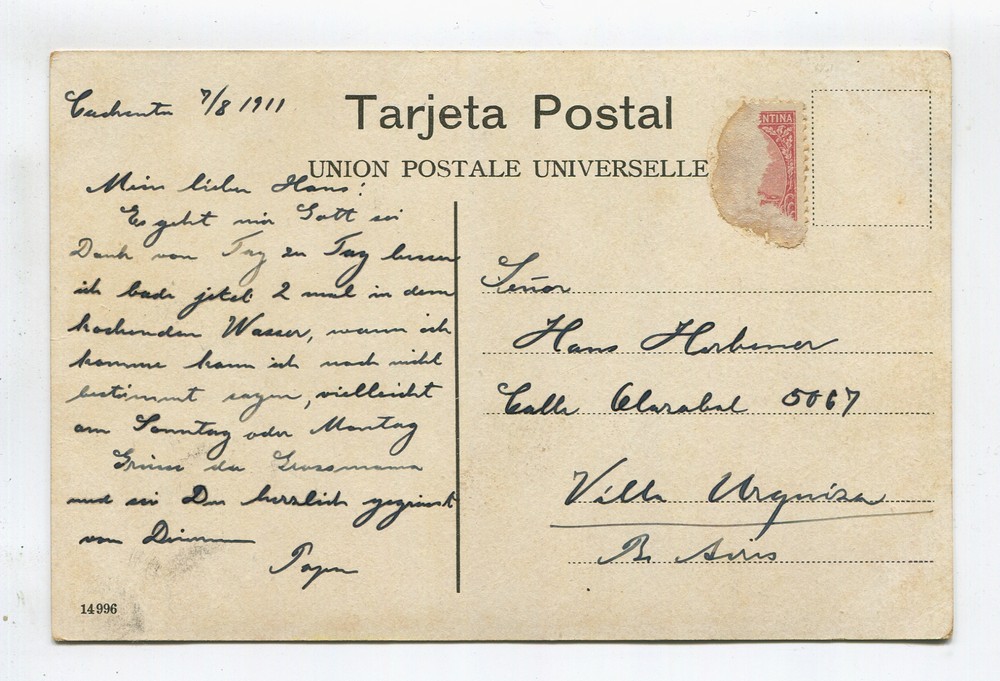 Cacheuta 7/8 1911
Tarjeta Postal
UNION POSTALE UNIVERSELLE
NTINA
Mein lieber Hans!
Es geht mir Gott sei
Dank von Tag zu Tag besser
ich bade jetzt 2 mal in dem
kochenden Wasser, wann ich
komme kann ich noch nicht
bestimmt sagen, vielleicht
am Sonntag oder Montag
Grüsse die Grossmama
und sei Du herzlich gegrüsst
von Deinem
Papa
14996
Señor
Hans
Calle Olazabal 5067
Villa Urquiza
Bs Aires